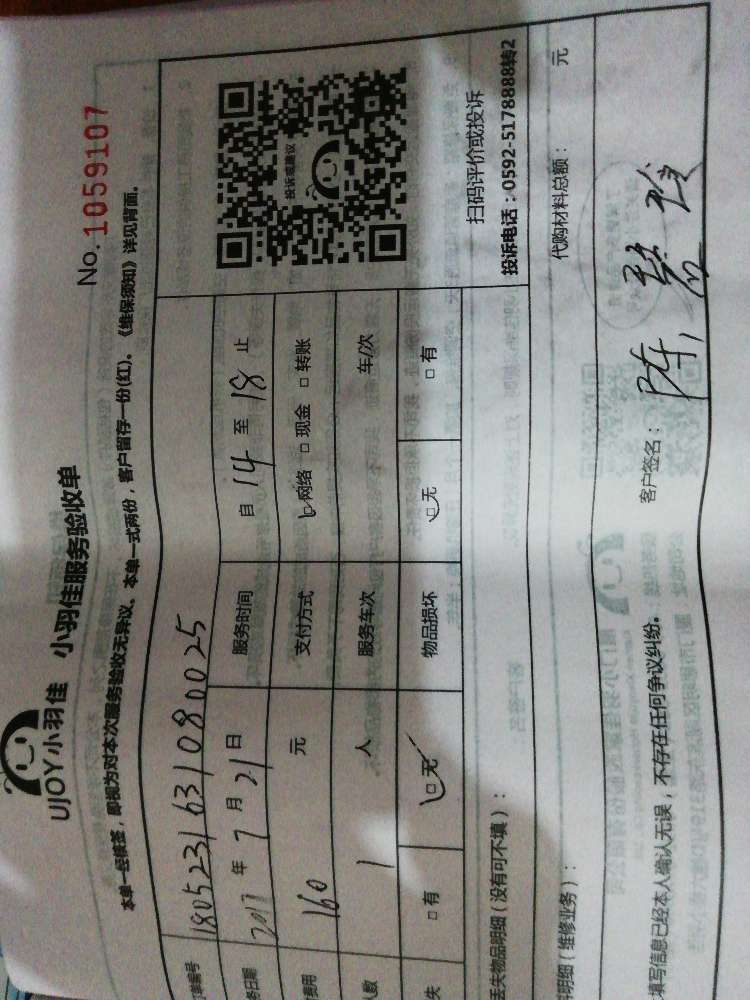 UJOY小羽佳 小羽佳服务验收单
No. 1059107
本单一经清签，即视为对本次服务验收无异议、本单一式两份，客户留存一份(红)。《维保须知》详见背面。
单编号 1805231631080025
务日期 2017 年 7 月 21 日 服务时间 自 14 至 18 止
费用 160 元 支付方式 网络 □ 现金 □ 转账
人数 1 人 服务车次 车/次
失 □ 有 □ 无 物品损坏 □ 无 □ 有
投诉或建议
扫码评价或投诉
投诉电话：0592-5178888转2
丢失物品明细（没有可不填）：
明细（维修业务）： 代购材料总额： 元
填写信息已经本人确认无误，不存在任何争议纠纷。 客户签名： 陈